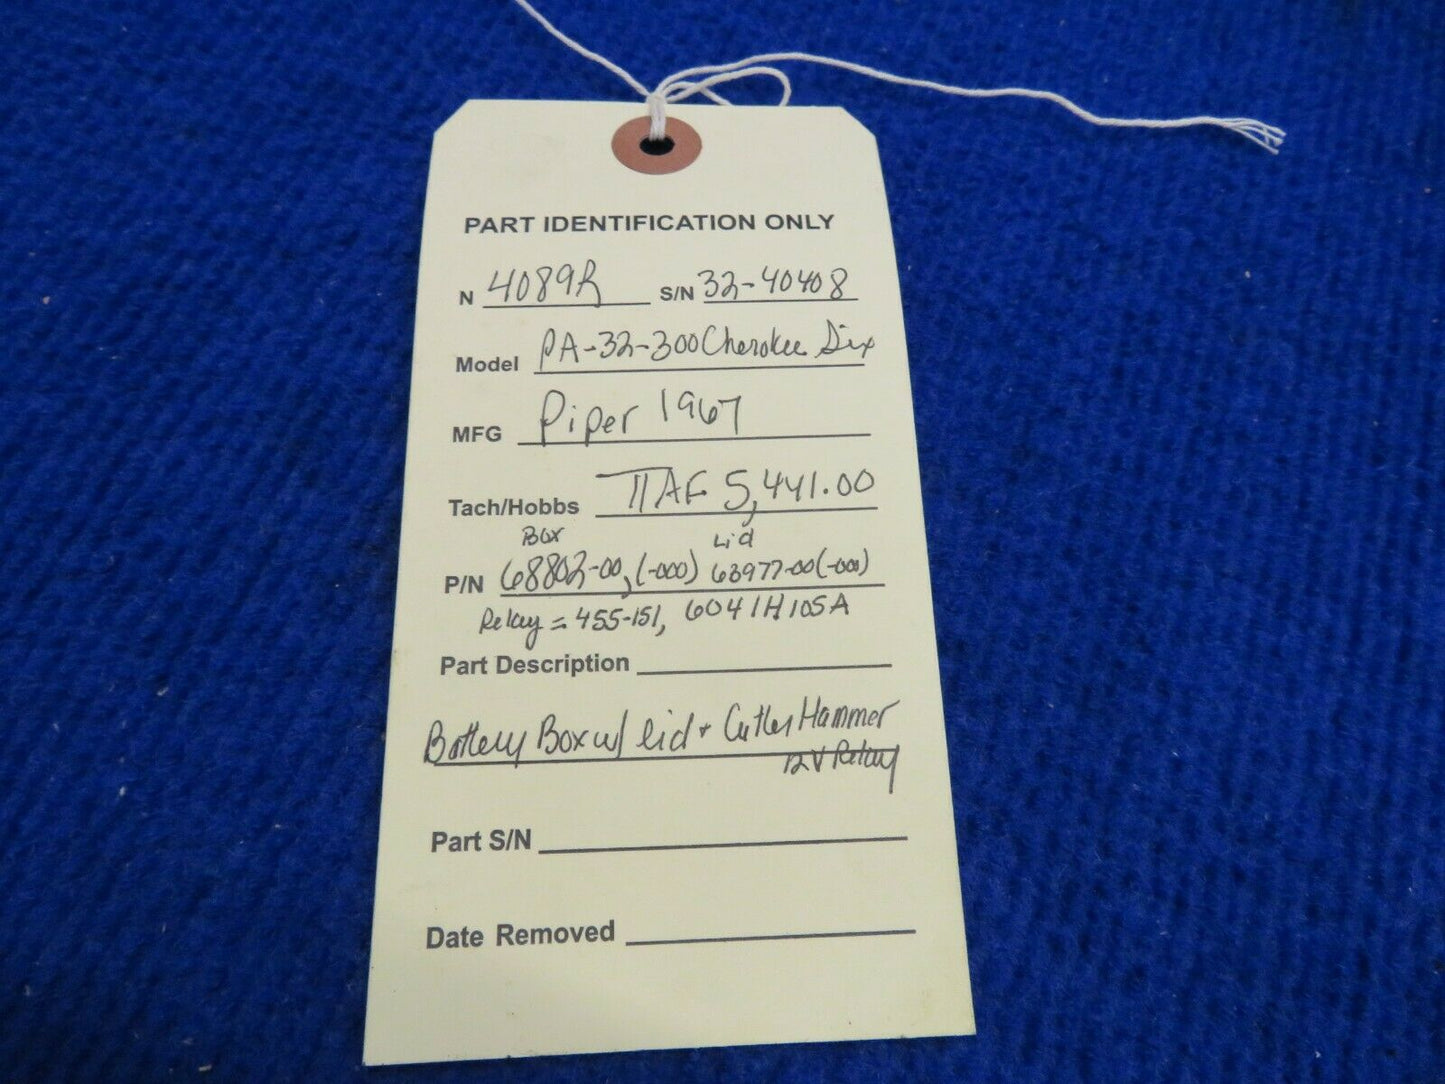 PART IDENTIFICATION ONLY
N 4089R S/N 32-40408
Model PA-32-300 Cherokee Six
MFG Piper 1967
Tach/Hobbs TTAF 5,441.00
Box Lid
P/N 68802-00, (-000) 63977-00 (-000)
Relay = 455-151, 6041H105A
Part Description
Battery Box w/ lid + Cutler Hammer
12V Relay
Part S/N
Date Removed